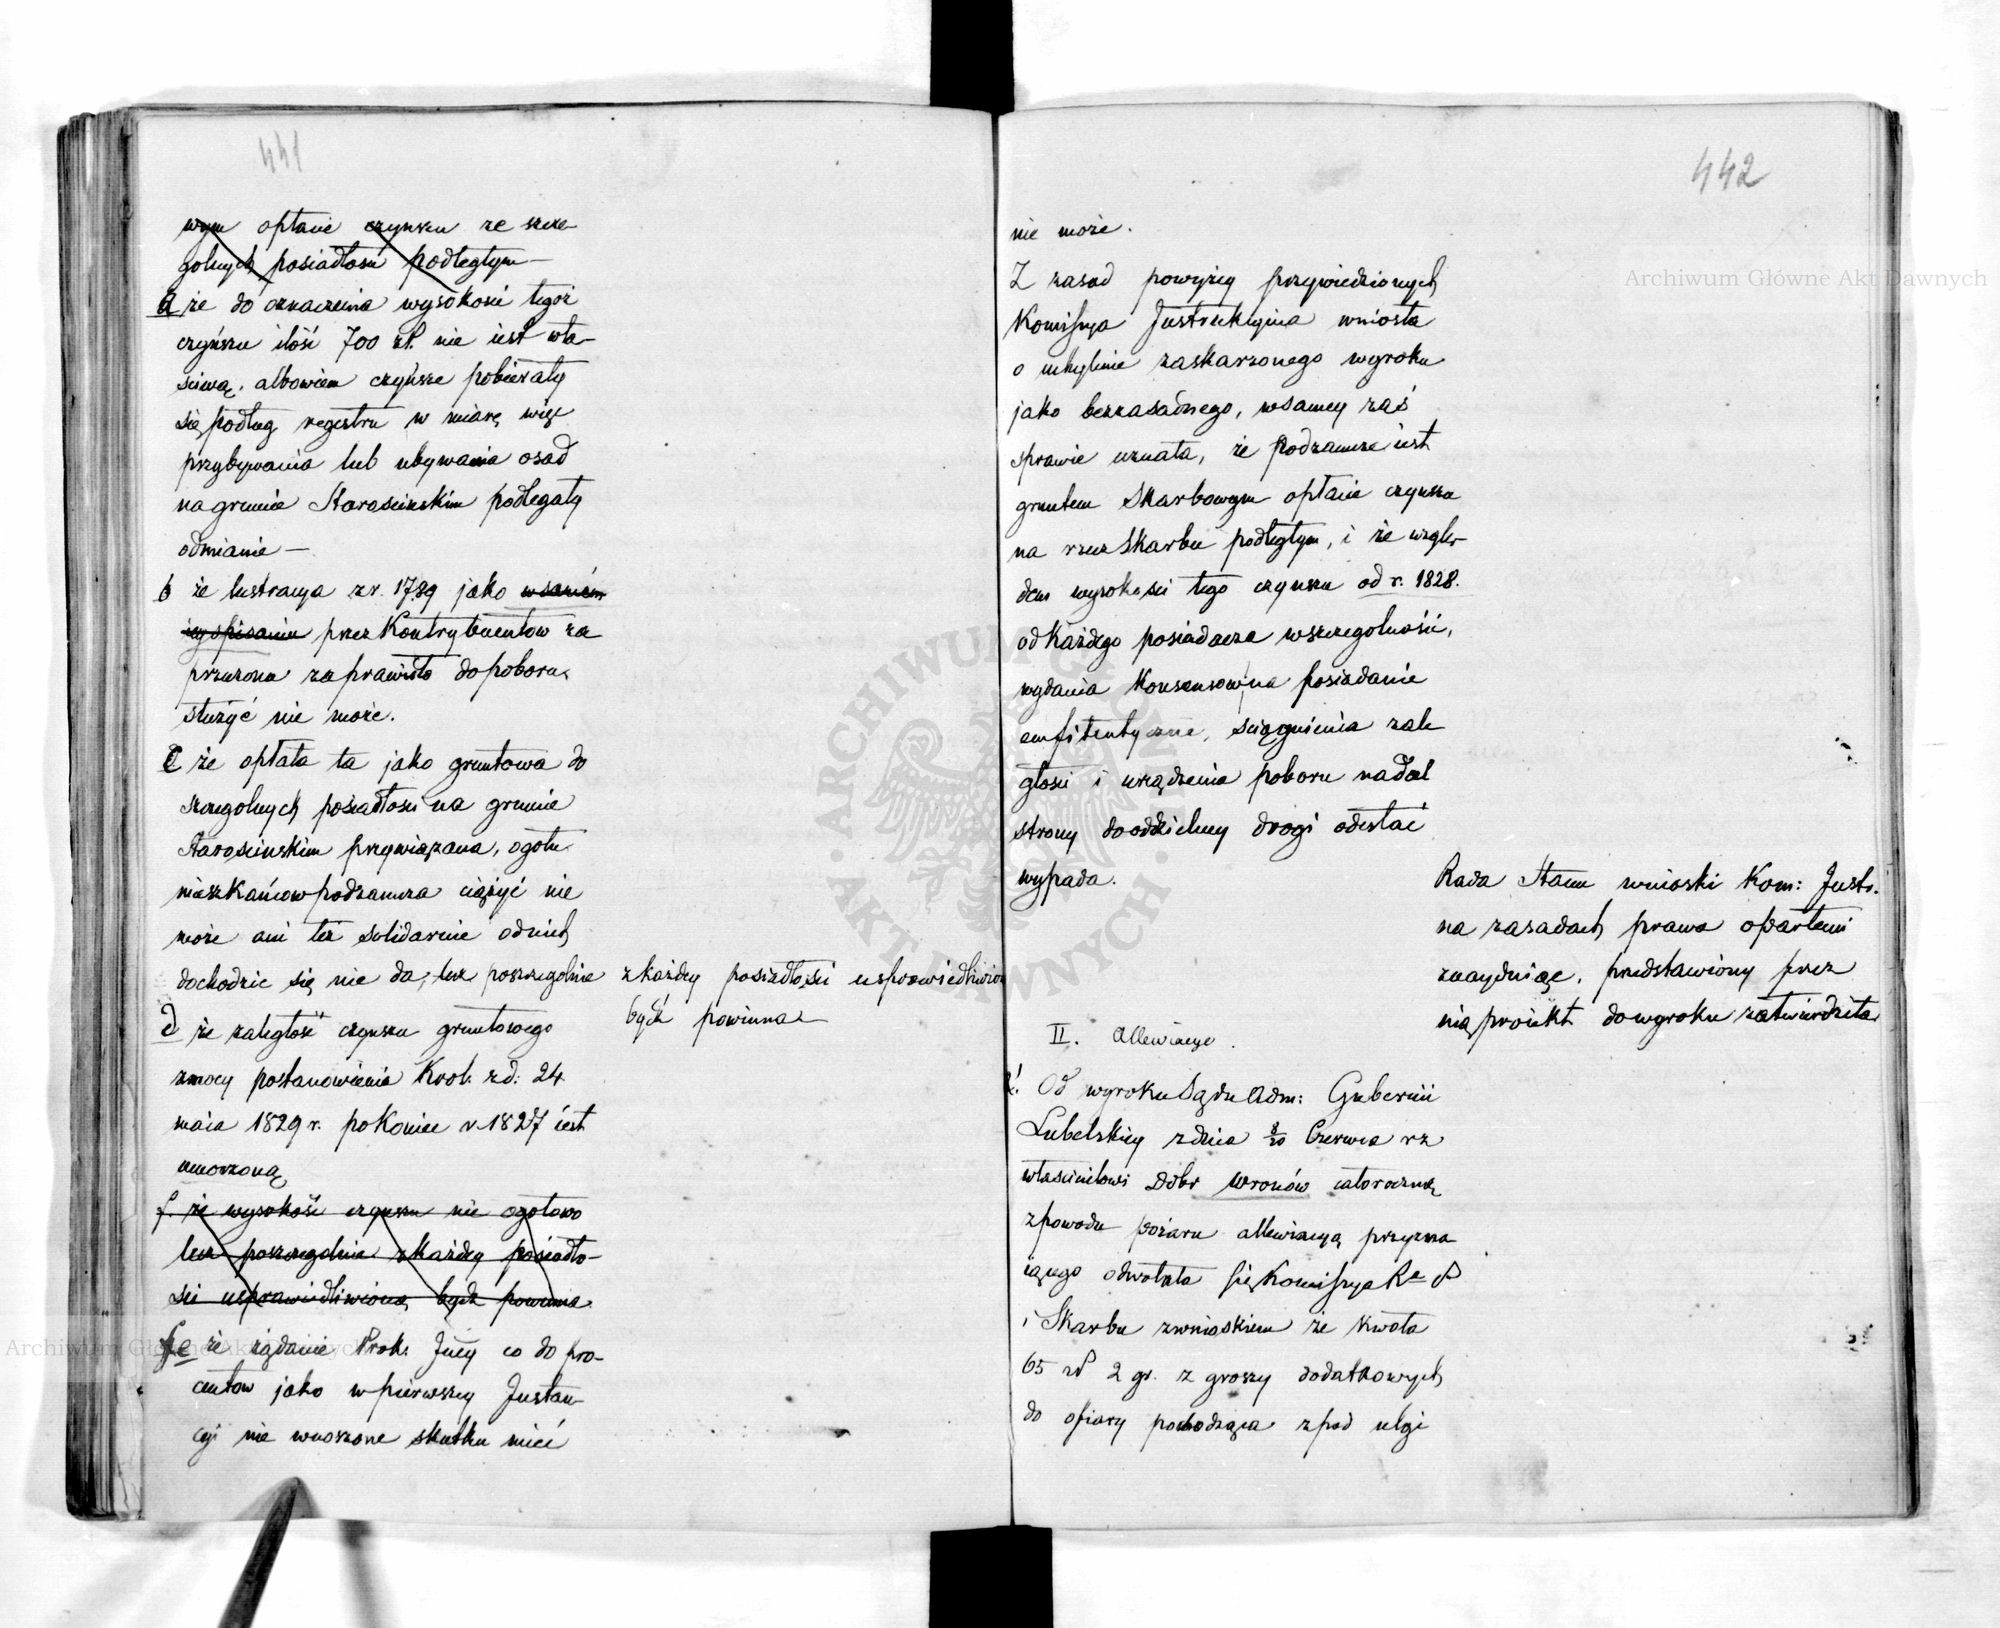 441
wym opłacie czynszu ze szcze-
golnych posiadłosci podległym —
a że do oznaczenia wysokosci tegoż
czynszu ilość 700 zł. nie iest wła-
sciwą, albowiem czynsze pobierały
się podług regestru w miarę więc
przybywania lub ubywania osad
na gruncie Starościnskim podlegały
odmianie —
b że lustracya z r. 1789 jako w samém
iey spisaniu przez Kontrybuentow za
przeczona za prawidło do poboru
służyć nie może.
c że opłata ta jako gruntowa do
szczegolnych posiadłosci na gruncie
Starościnskim przywiązana, ogołu
mieszkańcow podzamcza ciążyć nie
może ani też solidarnie od nich
dochodzic się nie da, lecz poszczegolnie z każdey posiadłosci usprawiedliwion
być powinna
d że zaległość czynszu gruntowego
z mocy postanowienia Krol. z d: 24
maia 1829 r. po koniec r 1827 iest
umorzoną
f. że wysokość czynszu nie ogołowo
lecz poszczegolnie z każdey posiadło-
sci usprawiedliwioną bydź powinna
e że żądanie Prok. Jney co do pro-
centow jako w pierwszey Jnstan-
cyi nie wnoszone skutku mieć
442
nie może.
Z zasad powyżey przywiedzionych
Kommissya Jnstrukcyina wniosła
o uchylenie zaskarzonego wyroku
jako bezzasadnego, w samey zaś
sprawie uznała, że Podzamcze iest
gruntem Skarbowym opłacie czynszu
na rzecz Skarbu podległym, i że wzglę-
dem wysokosci tego czynszu od r. 1828.
od każdego posiadacza w szczegolności,
wydania Konsensow na posiadanie
emfiteutyczne, sciągnienia zale
głosci i urządzenia poboru nadal
strony do oddzielney drogi odesłać
wypada.
Rada Stanu wnioski Kom: Jnstr.
na zasadach prawa opartemi
znayduiąc, przedstawiony przez
nią proiekt do wyroku zatwierdziła
II. Allewiacye.
1. Od wyroku Sądu Adm: Gubernii
Lubelskiey z dnia 8/20 Czerwca rz
włascicielowi Dobr Wronów całoroczną
z powodu pożaru allewiacyą przyzna
iącego odwołała się Kommissya Rz P
i Skarbu z wnioskiem że kwota
65 zł 2 gr. z groszy dodatkowych
do ofiary pochodząca z pod ulgi
ARCHIWUM GŁÓWNE AKT DAWNYCH
Archiwum Główne Akt Dawnych
Archiwum Główne Akt Dawnych